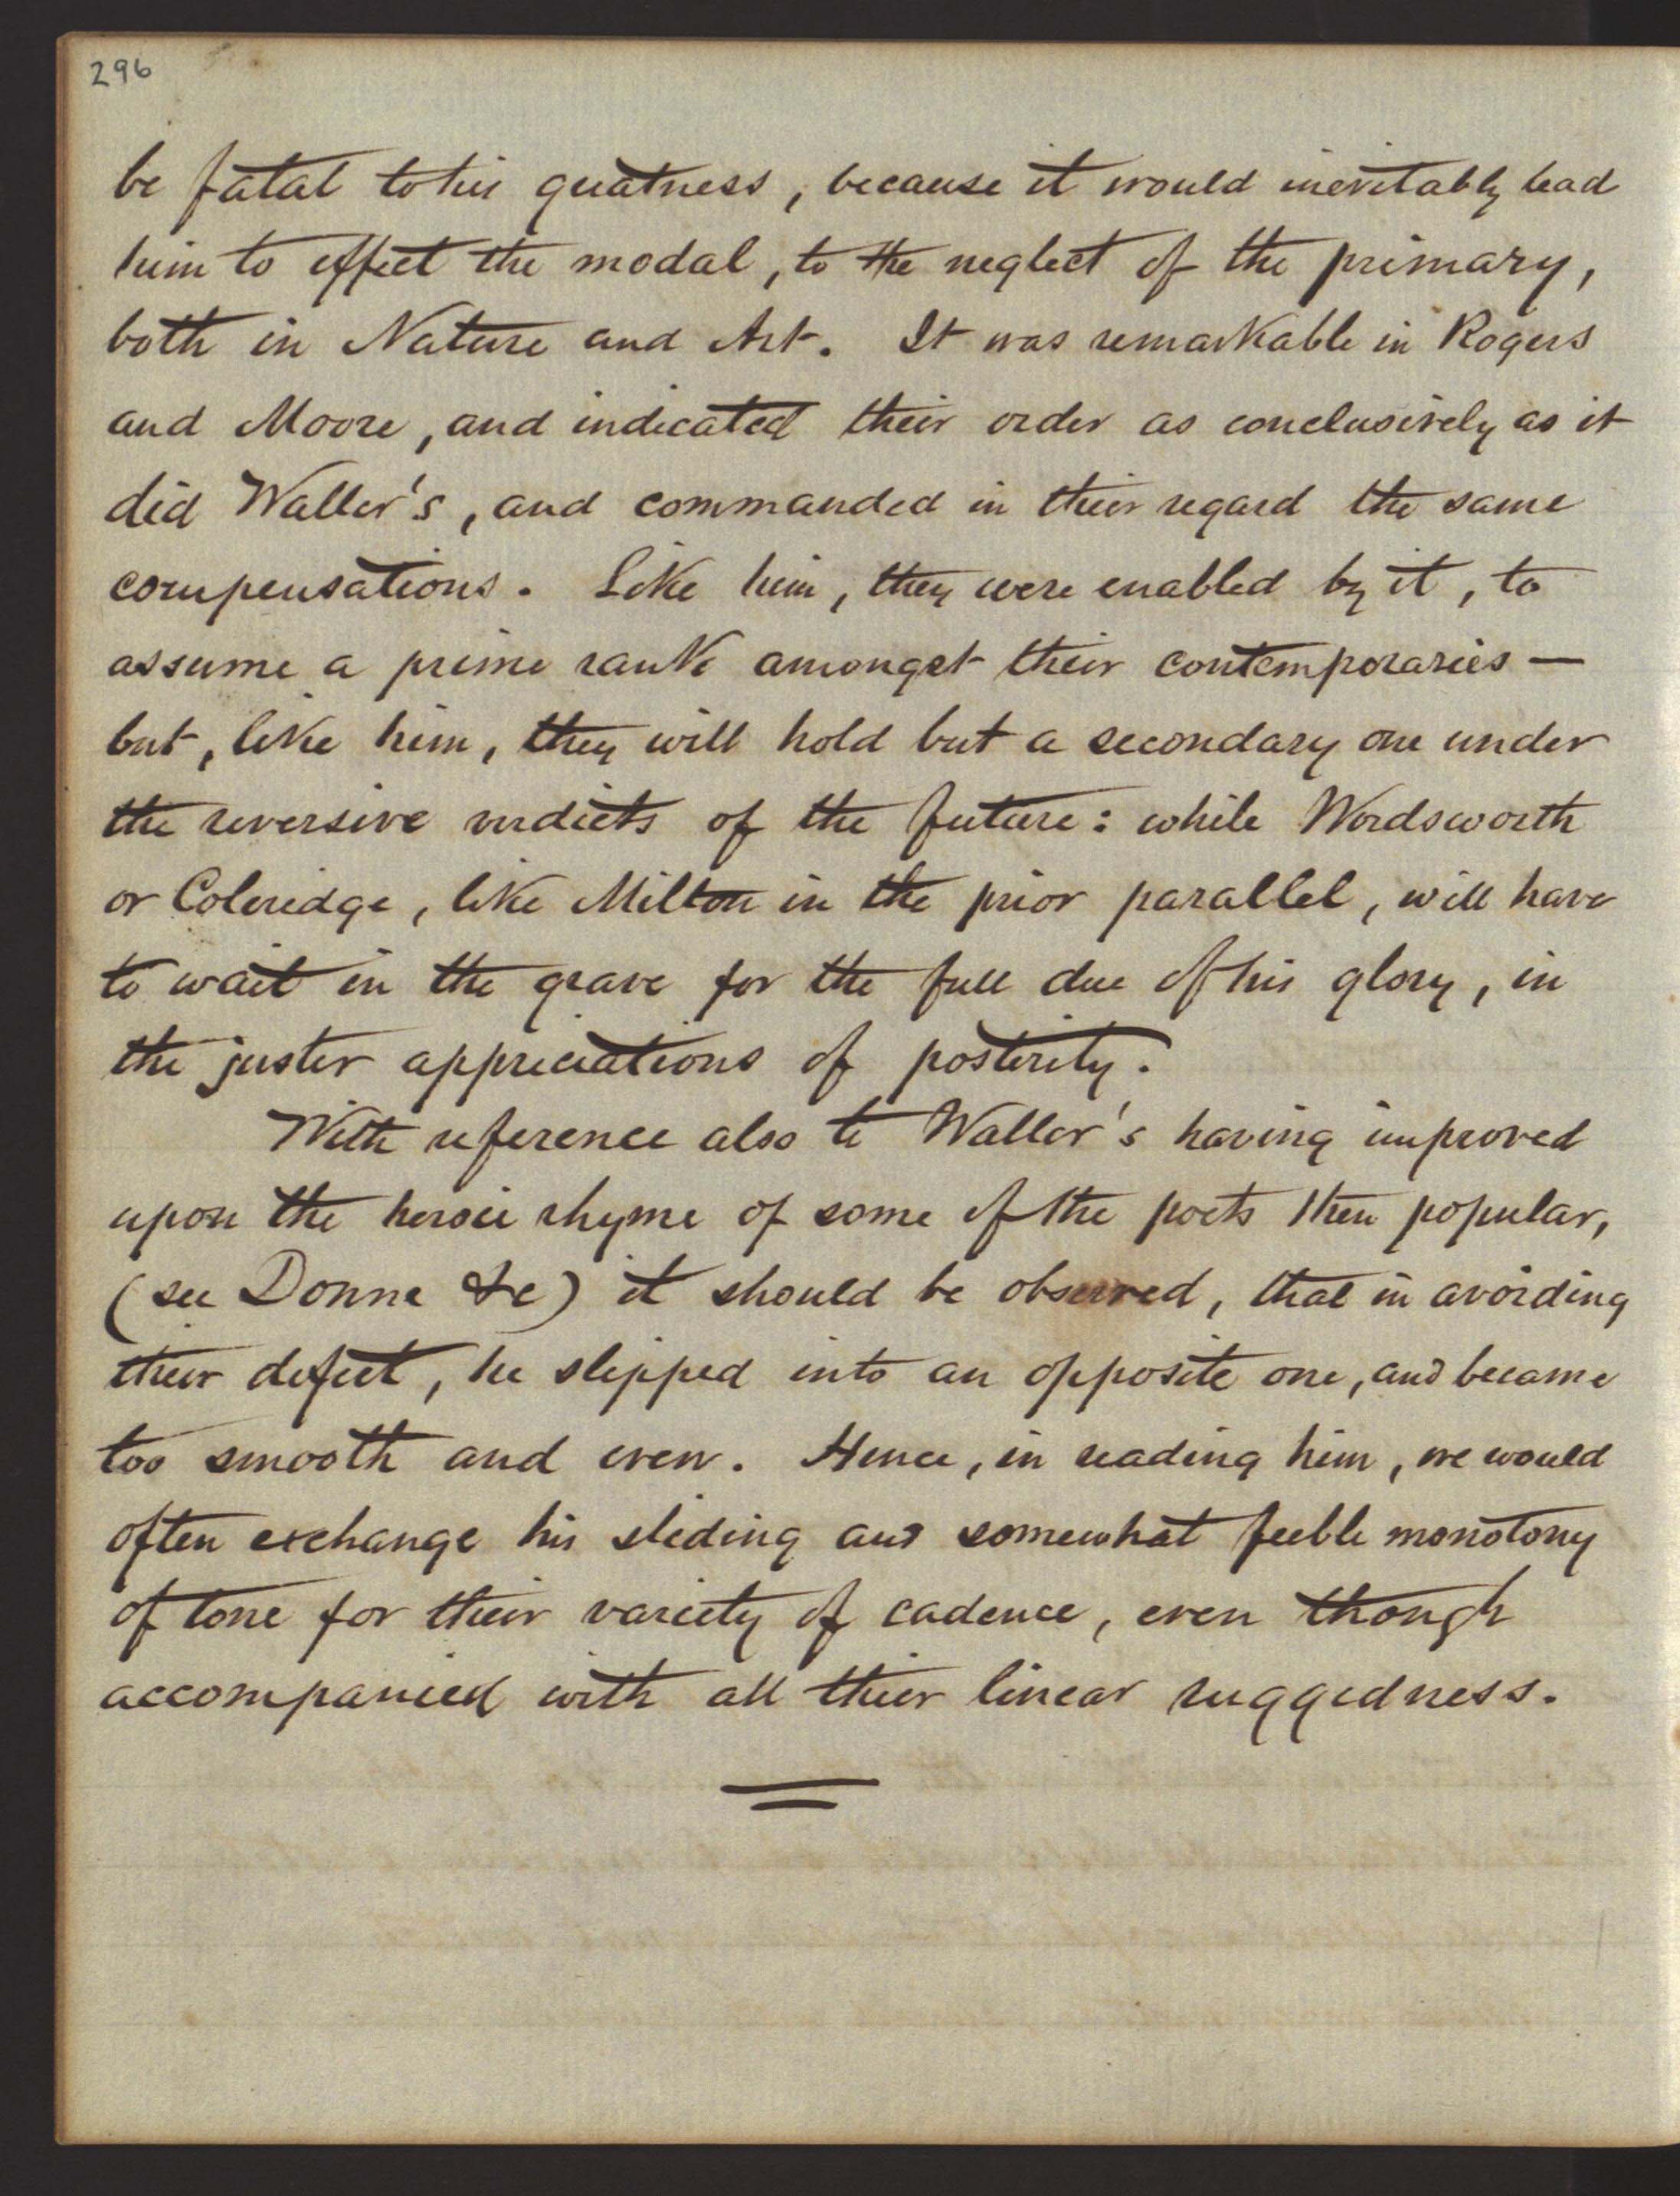 296
be fatal to his greatness, because it would inevitably lead
him to effect the modal, to the neglect of the primary,
both in Nature and Art. It was remarkable in Rogers
and Moore, and indicated their order as conclusively as it
did Waller's, and commanded in their regard the same
compensations. Like him, they were enabled by it, to
assume a prime rank amongst their contemporaries —
but, like him, they will hold but a secondary one under
the reversive verdicts of the future: while Wordsworth
or Coleridge, like Milton in the prior parallel, will have
to wait in the grave for the full due of his glory, in
the juster appreciations of posterity.
With reference also to Waller's having improved
upon the heroic rhyme of some of the poets then popular,
(see Donne &c) it should be observed, that in avoiding
their defect, he slipped into an opposite one, and became
too smooth and even. Hence, in reading him, we would
often exchange his sliding and somewhat feeble monotony
of tone for their variety of cadence, even though
accompanied with all their linear ruggedness.